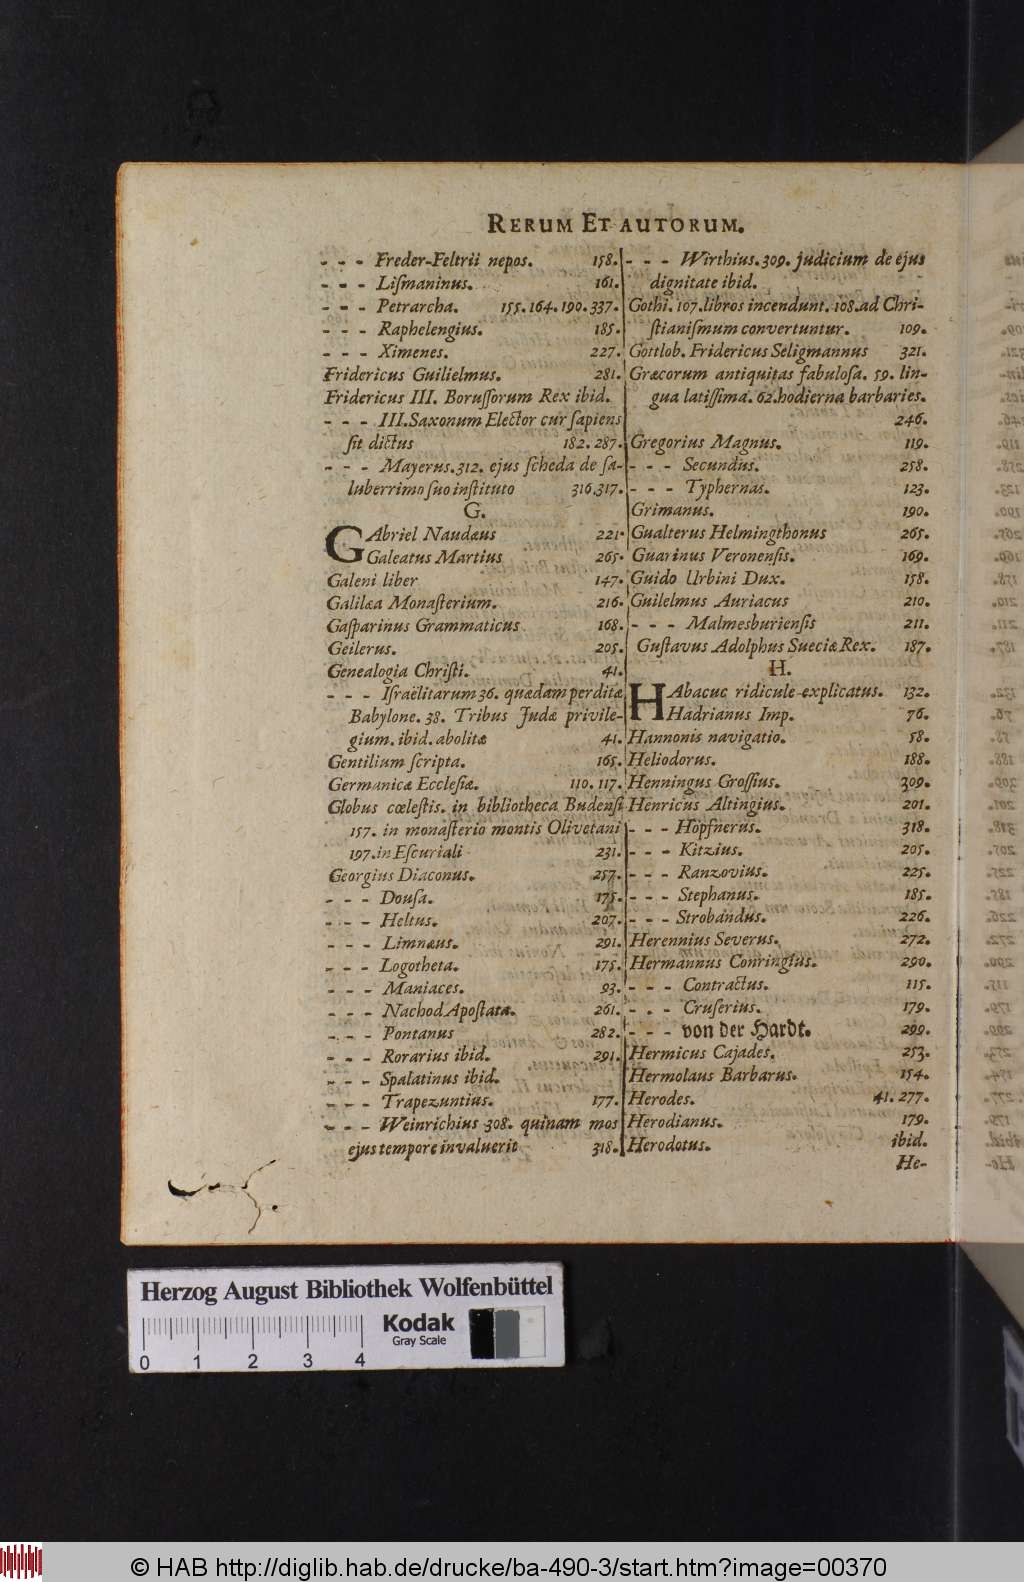 RERUM ET AUTORUM.
- - - Freder-Feltrii nepos. 158.
- - - Liſmaninus. 161.
- - - Petrarcha. 155. 164. 190. 337.
- - - Raphelengius. 185.
- - - Ximenes. 227.
Fridericus Guilielmus. 281.
Fridericus III. Boruſſorum Rex ibid.
- - - III. Saxonum Elector cur ſapiens
ſit dictus 182. 287.
- - - Mayerus. 312. ejus ſcheda de ſa-
luberrimo ſuo inſtituto 316. 317.
G.
GAbriel Naudæus 221.
Galeatus Martius 265.
Galeni liber 147.
Galilæa Monaſterium. 216.
Gaſparinus Grammaticus 168.
Geilerus. 205.
Genealogia Chriſti. 41.
- - - Iſraëlitarum 36. quædam perditæ
Babylone. 38. Tribus Judæ privile-
gium. ibid. abolitæ 41.
Gentilium ſcripta. 165.
Germanicæ Eccleſiæ. 110. 117.
Globus cœleſtis. in bibliotheca Budenſi
157. in monaſterio montis Olivetani
197. in Eſcuriali 231.
Georgius Diaconus. 257.
- - - Douſa. 175.
- - - Heltus. 207.
- - - Limnæus. 291.
- - - Logotheta. 175.
- - - Maniaces. 93.
- - - Nachod Apoſtata. 261.
- - - Pontanus 282.
- - - Rorarius ibid. 291.
- - - Spalatinus ibid.
- - - Trapezuntius. 177.
- - - Weinrichius 308. quinam mos
ejus tempore invaluerit 318.
- - - Wirthius. 309. judicium de ejus
dignitate ibid.
Gothi. 107. libros incendunt. 108. ad Chri-
ſtianiſmum convertuntur. 109.
Gottlob. Fridericus Seligmannus 321.
Græcorum antiquitas fabuloſa. 59. lin-
gua latiſſima. 62. hodierna barbaries.
246.
Gregorius Magnus. 119.
- - - Secundus. 258.
- - - Typhernas. 123.
Grimanus. 190.
Gualterus Helmingthonus 265.
Guarinus Veronenſis. 169.
Guido Urbini Dux. 158.
Guilelmus Auriacus 210.
- - - Malmesburienſis 211.
Guſtavus Adolphus Sueciæ Rex. 187.
H.
HAbacuc ridicule explicatus. 132.
Hadrianus Imp. 76.
Hannonis navigatio. 58.
Heliodorus. 188.
Henningus Groſſius. 309.
Henricus Altingius. 201.
- - - Höpfnerus. 318.
- - - Kitzius. 205.
- - - Ranzovius. 225.
- - - Stephanus. 185.
- - - Strobandus. 226.
Herennius Severus. 272.
Hermannus Conringius. 290.
- - - Contractus. 115.
- - - Cruſerius. 179.
- - - von der Hardt. 299.
Hermicus Cajades. 253.
Hermolaus Barbarus. 154.
Herodes. 41. 277.
Herodianus. 179.
Herodotus. ibid.
He-
Herzog August Bibliothek Wolfenbüttel
Kodak
Gray Scale
0 1 2 3 4
© HAB http://diglib.hab.de/drucke/ba-490-3/start.htm?image=00370